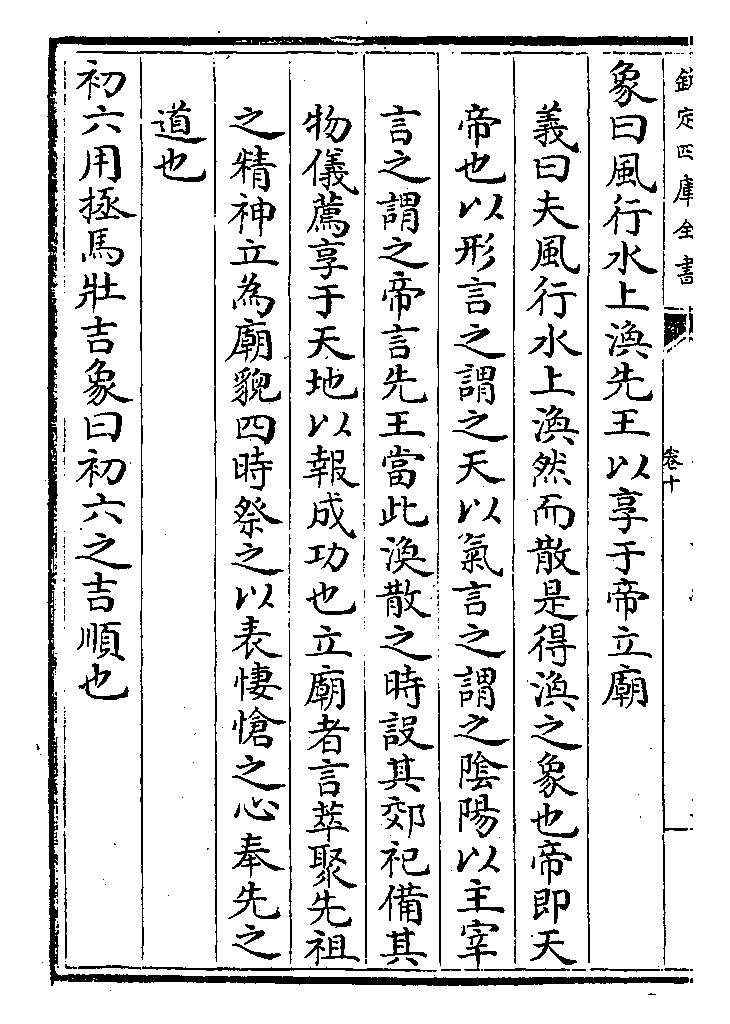 欽定四庫全書
卷十
象曰風行水上渙先王以享于帝立廟
義曰夫風行水上渙然而散是得渙之象也帝即天
帝也以形言之謂之天以氣言之謂之陰陽以主宰
言之謂之帝言先王當此渙散之時設其郊祀備其
物儀薦享于天地以報成功也立廟者言萃聚先祖
之精神立為廟貌四時祭之以表悽愴之心奉先之
道也
初六用拯馬壯吉象曰初六之吉順也